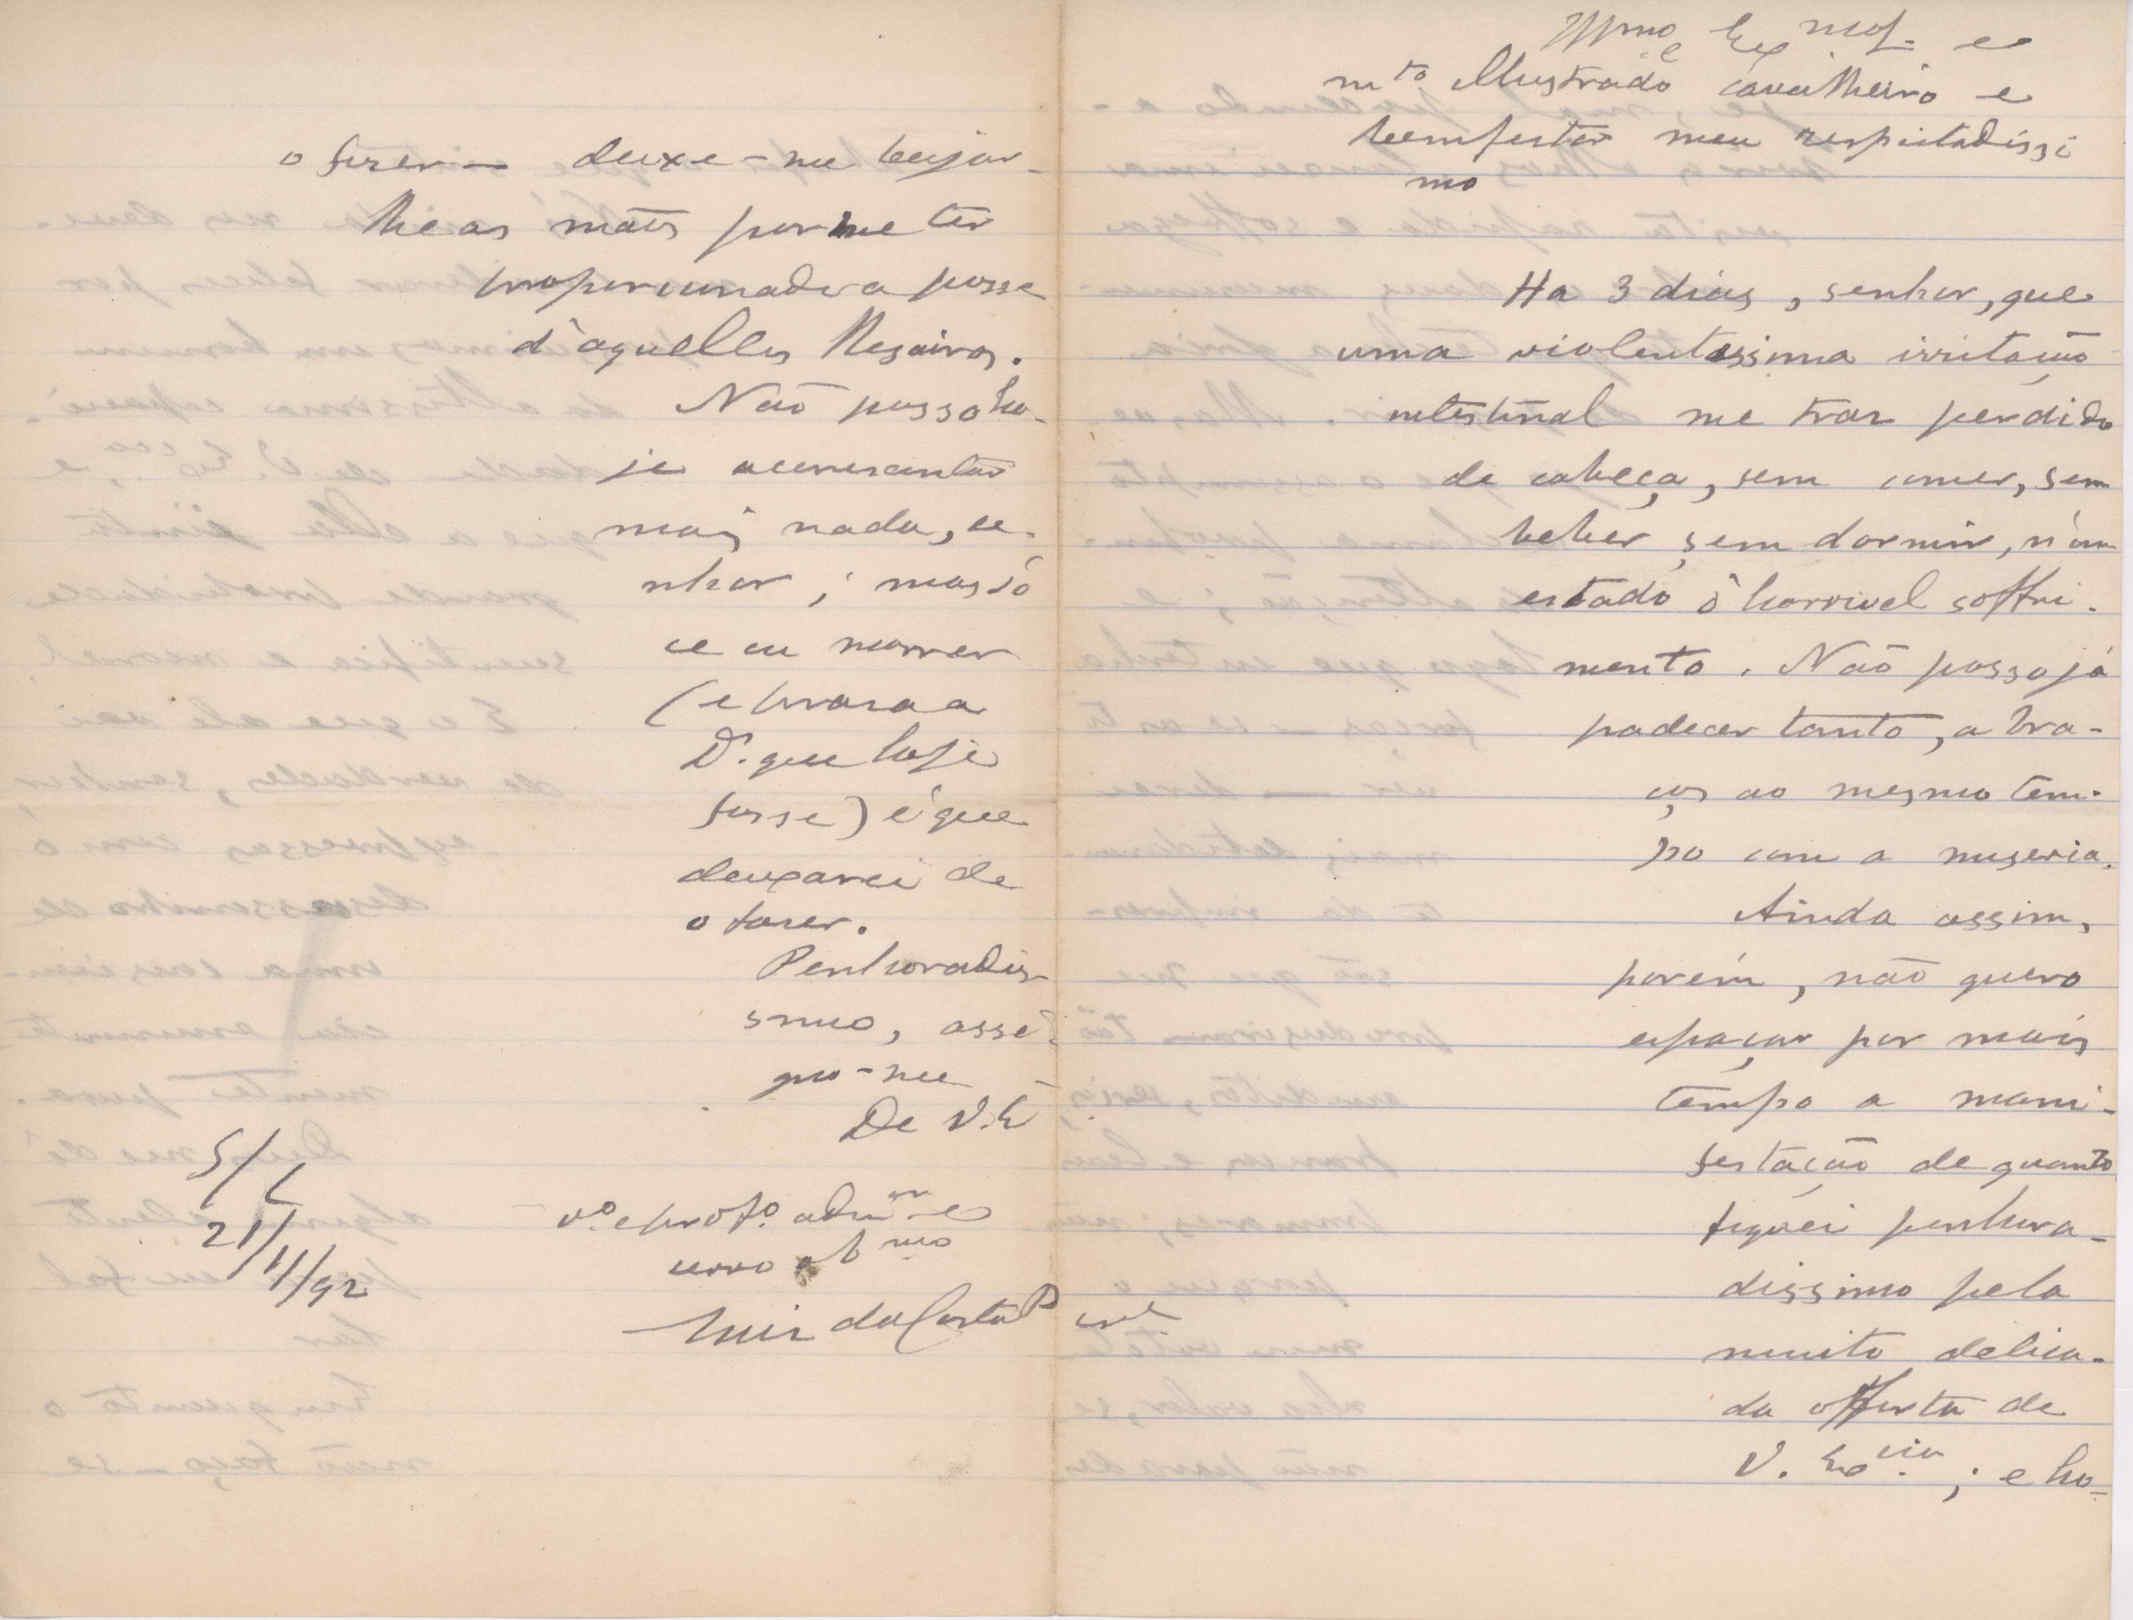 Illmo e Exmo Sr. e
mto Illustrado cavalheiro e
bemfeitor meu respeitadissi
mo
Ha 3 dias, senhor, que
uma violentissima irritação
intestinal me traz perdido
de cabeça, sem comer, sem
beber, sem dormir, n'um
estado d'horrivel soffri-
mento. Não posso já
padecer tanto, a bra-
ços ao mesmo tem-
po com a miseria.
Ainda assim,
porém, não quero
espaçar por mais
tempo a mani-
festação de quanto
fiquei penhora-
dissimo pela
muito delica-
da offerta de
V. Excia.; e ho-
o fizer — deixe-me beijar-
lhe as mãos por me ter
proporcionado a posse
d'aquelles thesoiros.
Não posso ho-
je accrescentar
mais nada, se-
nhor; mas só
se eu morrer
(e praza a
D. que hoje
fosse) é que
deixarei de
o fazer.
Penhoradis-
simo, assi-
gno-me
De V. E
vor. e profo. admor e
servo obmo
Luiz da Costa P
S/C
21/11/92